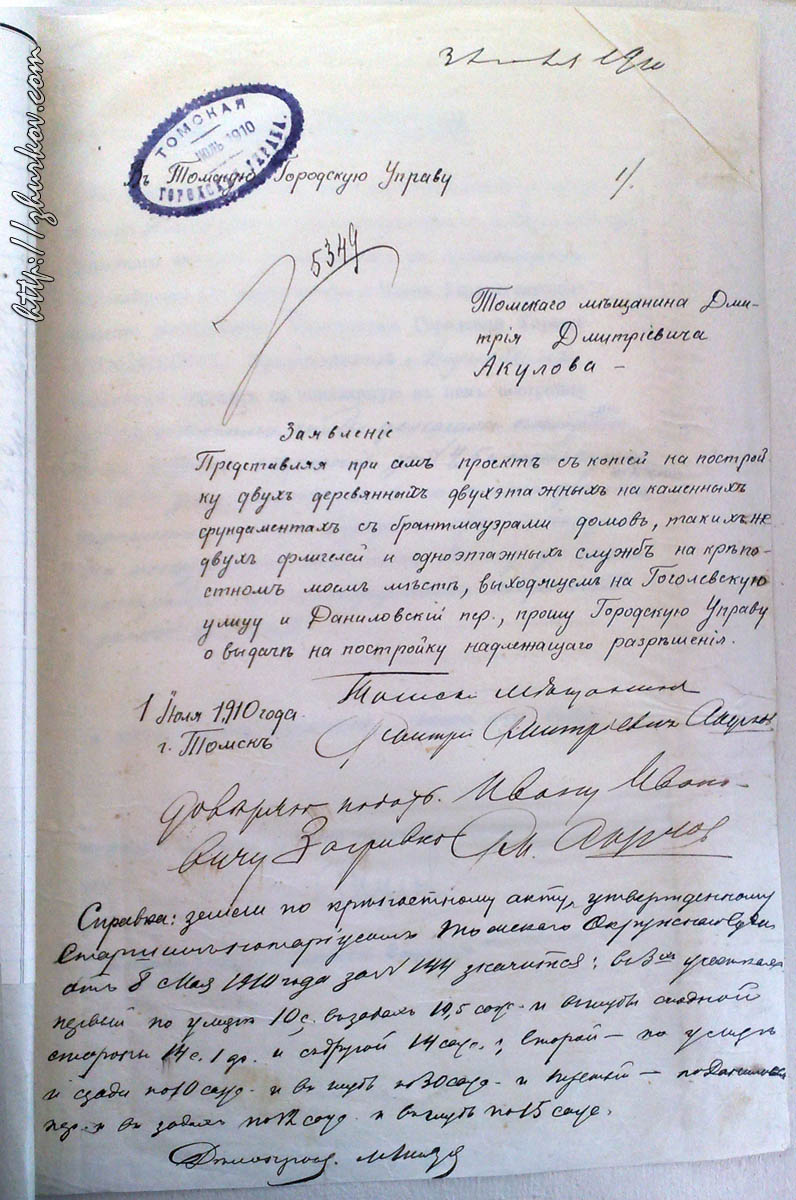 1910
ТОМСКАЯ
ИЮЛЬ 1910
ГОРОДСК. УПРАВА.
Въ Томскую Городскую Управу
1/.
5349
Томскаго мѣщанина Дми-
трія Дмитріевича
Акулова –
Заявленіе
Представляя при семъ проектъ съ копіей на построй
ку двухъ деревянныхъ двухэтажныхъ на каменныхъ
фундаментахъ съ брантмауэрами домовъ, такихъ же
двухъ флигелей и одноэтажныхъ службъ на крѣпо-
стномъ моемъ мѣстѣ, выходящемъ на Гоголевскую
улицу и Даниловскій пер., прошу Городскую Управу
о выдачѣ на постройку надлежащаго разрѣшенія.
1 Іюля 1910 года.
г. Томскъ
Томскій мѣщанинъ
Дмитрій Дмитріевичъ Акуловъ
Довѣряю подать Ивану Ивано-
вичу Дм. Акуловъ
Справка: земли по крѣпостному акту, утвержденному
Старшимъ нотаріусомъ Томскаго Окружнаго Суда
отъ 8 Мая 1910 года за № 144 значится: въ 3хъ участкахъ
первый по улицѣ 10 с. въ задахъ 10,5 саж. и вглубь съ одной
стороны 14 с. 1 ар. и съ другой 14 саж.; второй – по улицѣ
и сзади по 10 саж. и вглубь по 30 саж. и третій – по Даниловск.
пер. и въ задахъ по 12 саж. и вглубь по 15 саж.
http://zhurkov.com